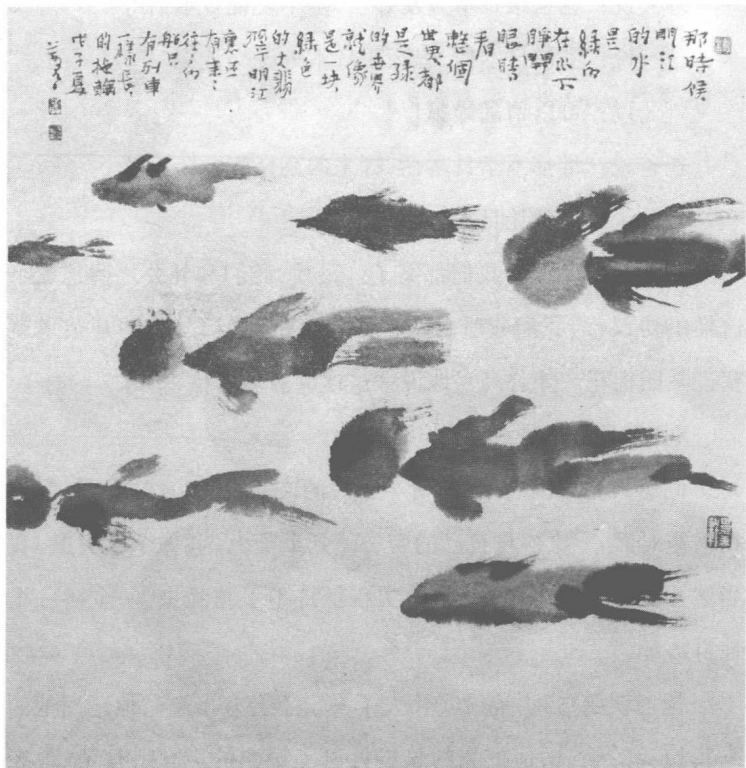 那時候
閩江
的水
是
綠的
在水下
睜開
眼睛
看
整個
世界都
是綠
的世界
就像
是一块
綠色
的大翡
翠閩江
裏还
有来々
往々的
船只
有列車
一樣長
的拖輪
戊子夏